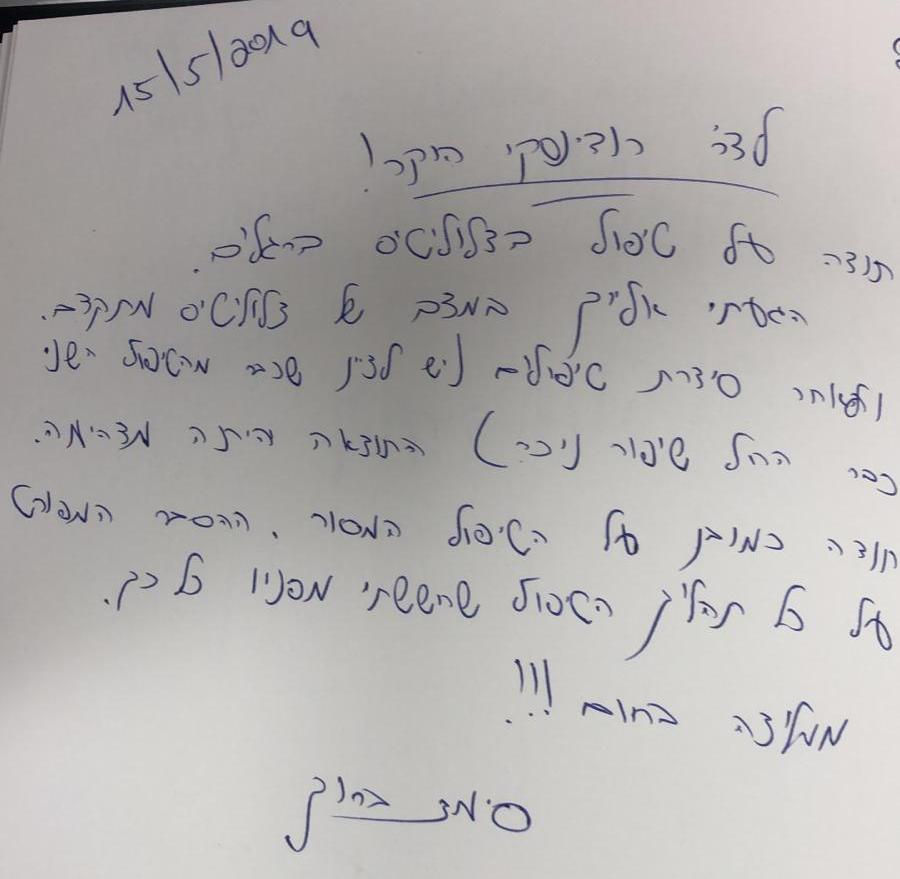 15/5/2019
לדר' רודינסקי היקר!
תודה על טיפול בצלוליטיס ברגלים.
הגעתי אלייך במצב של צלוליטיס מתקדם.
ולאחר סידרת טיפולים (יש לציין שכבר מהטיפול השני
כבר החל שיפור ניכר) התוצאה היתה מדהימה.
תודה כמובן על הטיפול המסור, ההסבר המפורט
על כל תהליך הטיפול שחששתי מפניו כל כך.
ממליצה בחום !!!
ברוך